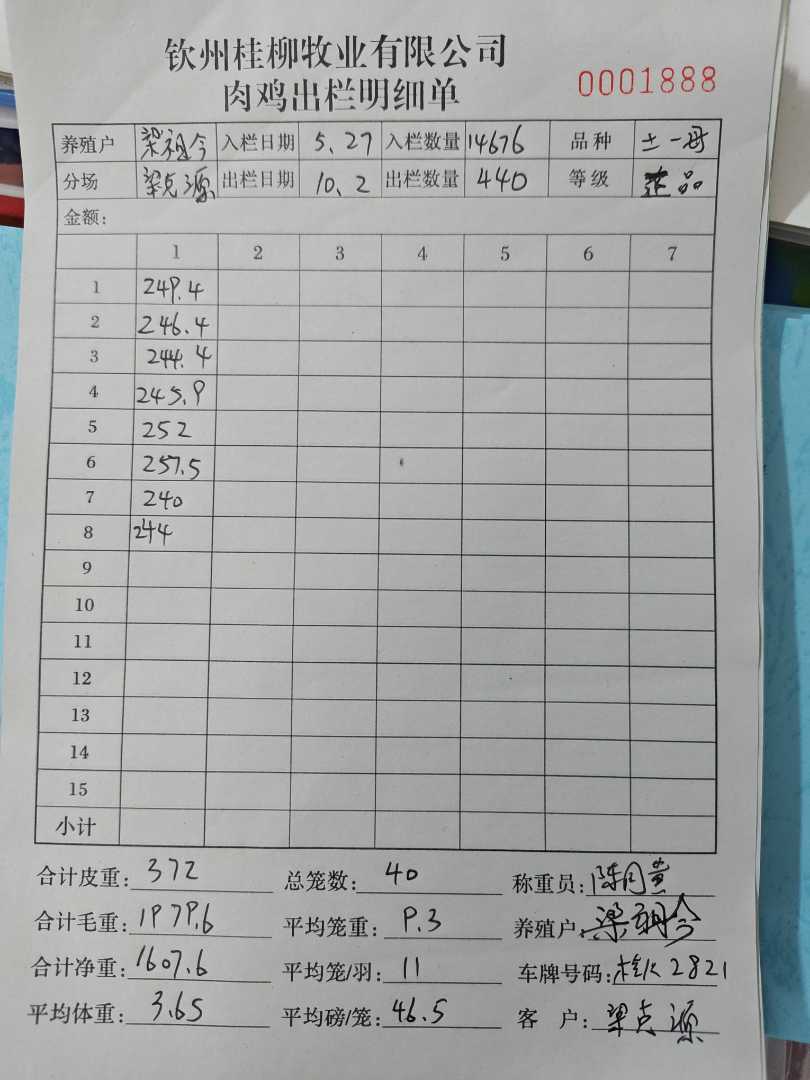 钦州桂柳牧业有限公司
肉鸡出栏明细单 0001888
养殖户 梁祖今 入栏日期 5.27 入栏数量 14676 品种 土一母
分场 梁克源 出栏日期 10.2 出栏数量 440 等级 品
金额:
1 2 3 4 5 6 7
1 249.4
2 246.4
3 244.4
4 245.9
5 252
6 257.5
7 240
8 244
9
10
11
12
13
14
15
小计
合计皮重: 372 总笼数: 40 称重员: 陈
合计毛重: 1979.6 平均笼重: 9.3 养殖户: 梁祖今
合计净重: 1607.6 平均笼/羽: 11 车牌号码: 桂K 2821
平均体重: 3.65 平均磅/笼: 46.5 客户: 梁克源